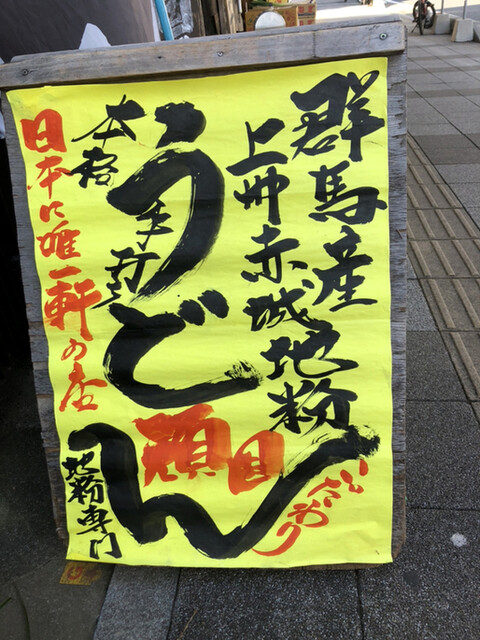 群馬産
上州赤城地粉
うどん
本格手打
頑固こだわり
日本に唯一軒の店
地粉専門